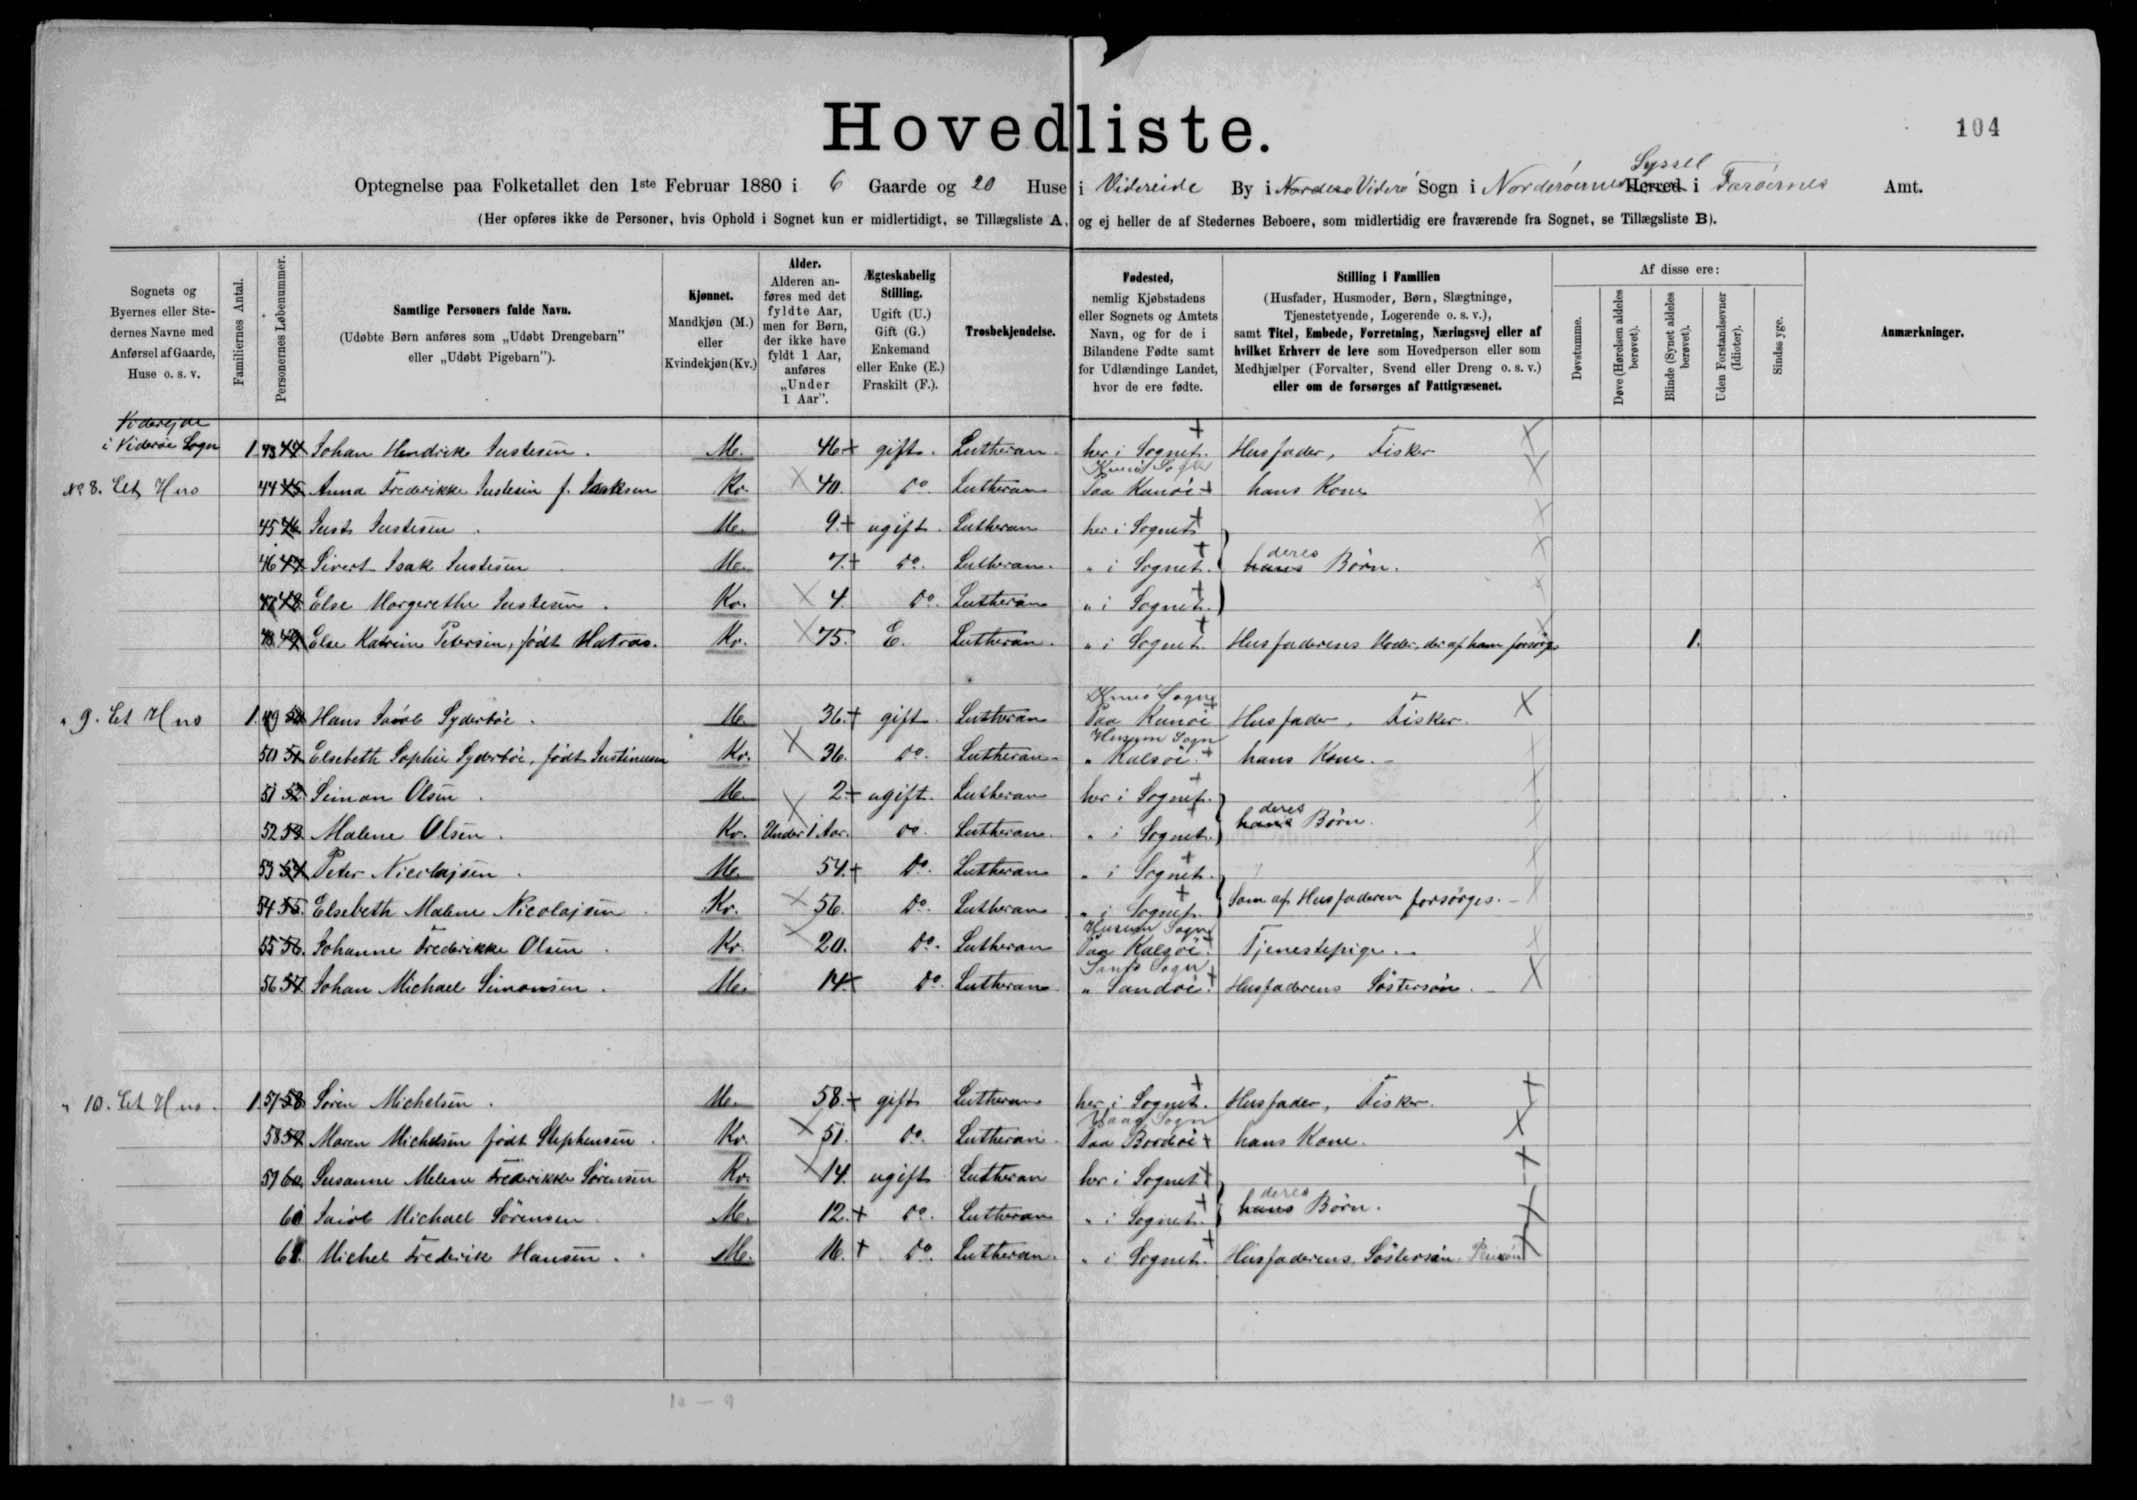 Hovedliste.
104
Optegnelse paa Folketallet den 1ste Februar 1880 i 6 Gaarde og 20 Huse i Videreide By i Viderø Sogn i Norderöernes Syssel Herred i Færöernes Amt.
(Her opføres ikke de Personer, hvis Ophold i Sognet kun er midlertidigt, se Tillægsliste A, og ej heller de af Stedernes Beboere, som midlertidig ere fraværende fra Sognet, se Tillægsliste B).
Sognets og Byernes eller Stedernes Navne med Anførsel af Gaarde, Huse o. s. v.
Familiernes Antal.
Personernes Løbenummer.
Samtlige Personers fulde Navn.
(Udøbte Børn anføres som „Udøbt Drengebarn" eller „Udøbt Pigebarn").
Kjønnet.
Mandkjøn (M.) eller Kvindekjøn (Kv.)
Alder.
Alderen anføres med det fyldte Aar, men for Børn, der ikke have fyldt 1 Aar, anføres „Under 1 Aar".
Ægteskabelig Stilling.
Ugift (U.) Gift (G.) Enkemand eller Enke (E.) Fraskilt (F.).
Trosbekjendelse.
Fødested,
nemlig Kjøbstadens eller Sognets og Amtets Navn, og for de i Bilandene Fødte samt for Udlændinge Landet, hvor de ere fødte.
Stilling i Familien
(Husfader, Husmoder, Børn, Slægtninge, Tjenestetyende, Logerende o. s. v.),
samt Titel, Embede, Forretning, Næringsvej eller af hvilket Erhverv de leve som Hovedperson eller som Medhjælper (Forvalter, Svend eller Dreng o. s. v.)
eller om de forsørges af Fattigvæsenet.
Af disse ere:
Døvstumme.
Døve (Hørelsen aldeles berøvet).
Blinde (Synet aldeles berøvet).
Uden Forstandsevner (Idioter).
Sindssyge.
Anmærkninger.
Viderejde
i Videröe Sogn 1. 43 44 Johan Hendrik Justesen. M. 46 gift. Lutheran her i Sognet. Husfader, Fisker
No 8. Et Hus 44 45 Anna Frederikke Justesen f. Isaksen Kv. 40. Do. Lutheran Paa Kunöi hans Kone
45 46 Just Justesen. M. 9. ugift. Lutheran her i Sognet
46 47 Sivert Isak Justesen M. 7. Do. Lutheran. " i Sognet. hans deres Börn.
47 48 Else Margrethe Justesen. Kv. 4. Do. Lutheran " i Sognet.
48 49 Else Katrine Petersen, födt Matras. Kv. 75. E. Lutheran. " i Sognet. Husfaderens Moder, der af ham forsörges 1.
" 9. Et Hus 1. 49 50 Hans Jacob Syderböe. M. 36. gift Lutheran Kunö Sogn Paa Kunöi Husfader, Fisker.
50 51 Elsebeth Sophie Syderböe, födt Justinussen Kv. 36. Do. Lutheran Husum Sogn " Kalsöi. hans Kone.
51 52 Simon Olsen. M. 2. ugift. Lutheran her i Sognet.
52 53 Malene Olsen. Kv. Under 1 Aar. Do. Lutheran. " i Sognet. hans deres Börn.
53 54 Peter Nicolajsen. M. 54. Do. Lutheran " i Sognet.
54 55. Elsebeth Malene Nicolajsen. Kv. 56. Do. Lutheran " i Sognet. Som af Husfaderen forsörges.
55 56. Johanne Frederikke Olsen. Kv. 20. Do. Lutheran Husum Sogn Paa Kalsöi. Tjenestepige.
56 57 Johan Michael Simonsen. M. 14 Do. Lutheran " Sandöi. Husfaderens Söstersön.
" 10. Et Hus. 1. 57 58 Sören Michelsen. M. 58. gift Lutheran her i Sognet. Husfader, Fisker.
58 59 Maren Michelsen födt Stephensen. Kv. 51. Do. Lutheran. Vaag Sogn Paa Bordöi hans Kone.
59 60. Susanne Melene Frederikke Sörensen Kv. 14. ugift Lutheran her i Sognet
60 Jacob Michael Sörensen M. 12. Do. Lutheran " i Sognet. hans deres Börn.
61. Michel Frederik Hansen. M. 16. Do. Lutheran. " i Sognet. Husfaderens Sösterson